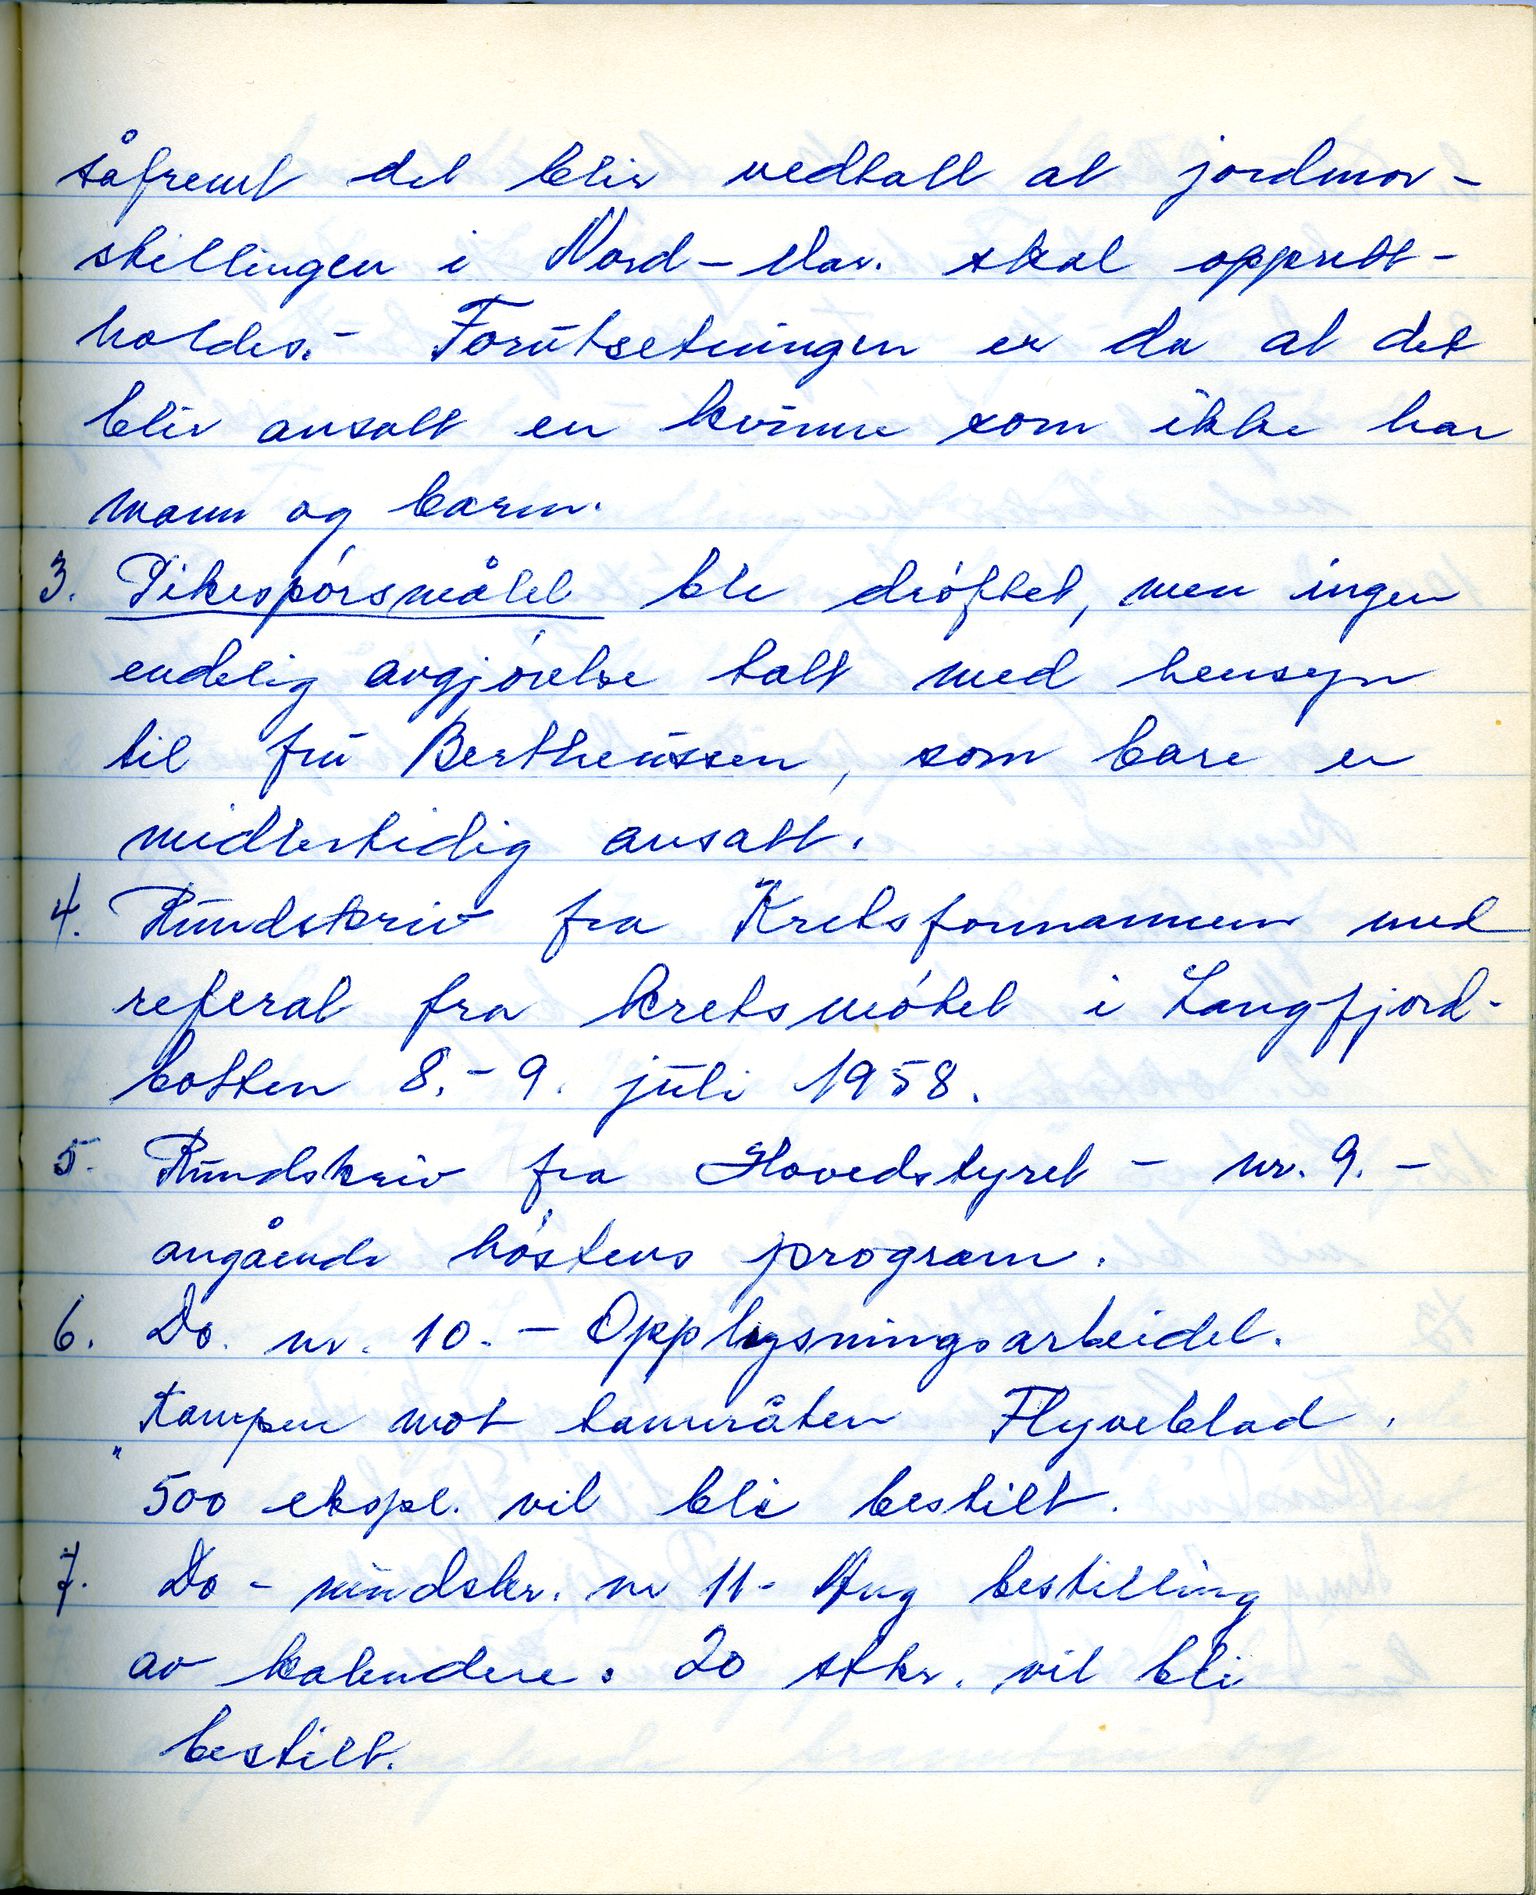 såfremt det blir vedtatt at jordmor-
stillingen i Nord-Var. skal opprett-
holdes.- Forutsetningen er da at det
blir ansatt en kvinne som ikke har
mann og barn.
3. Pikespørsmålet ble drøftet, men ingen
endelig avgjørelse tatt med hensyn
til fru Bertheussen, som bare er
midlertidig ansatt.
4. Rundskriv fra Kretsformannen med
referat fra kretsmøtet i Langfjord-
botten 8.-9. juli 1958.
5. Rundskriv fra Hovedstyret - nr. 9. -
angående høstens program.
6. Do. nr. 10. - Opplysningsarbeidet.
"Kampen mot tannråten Flyveblad.
500 ekspl. vil bli bestilt.
7. Do - rundskr. nr 11- Ang bestilling
av kalendere. 20 stkr. vil bli
bestilt.